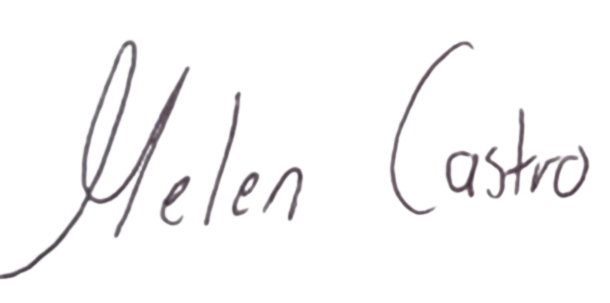 Melen Castro